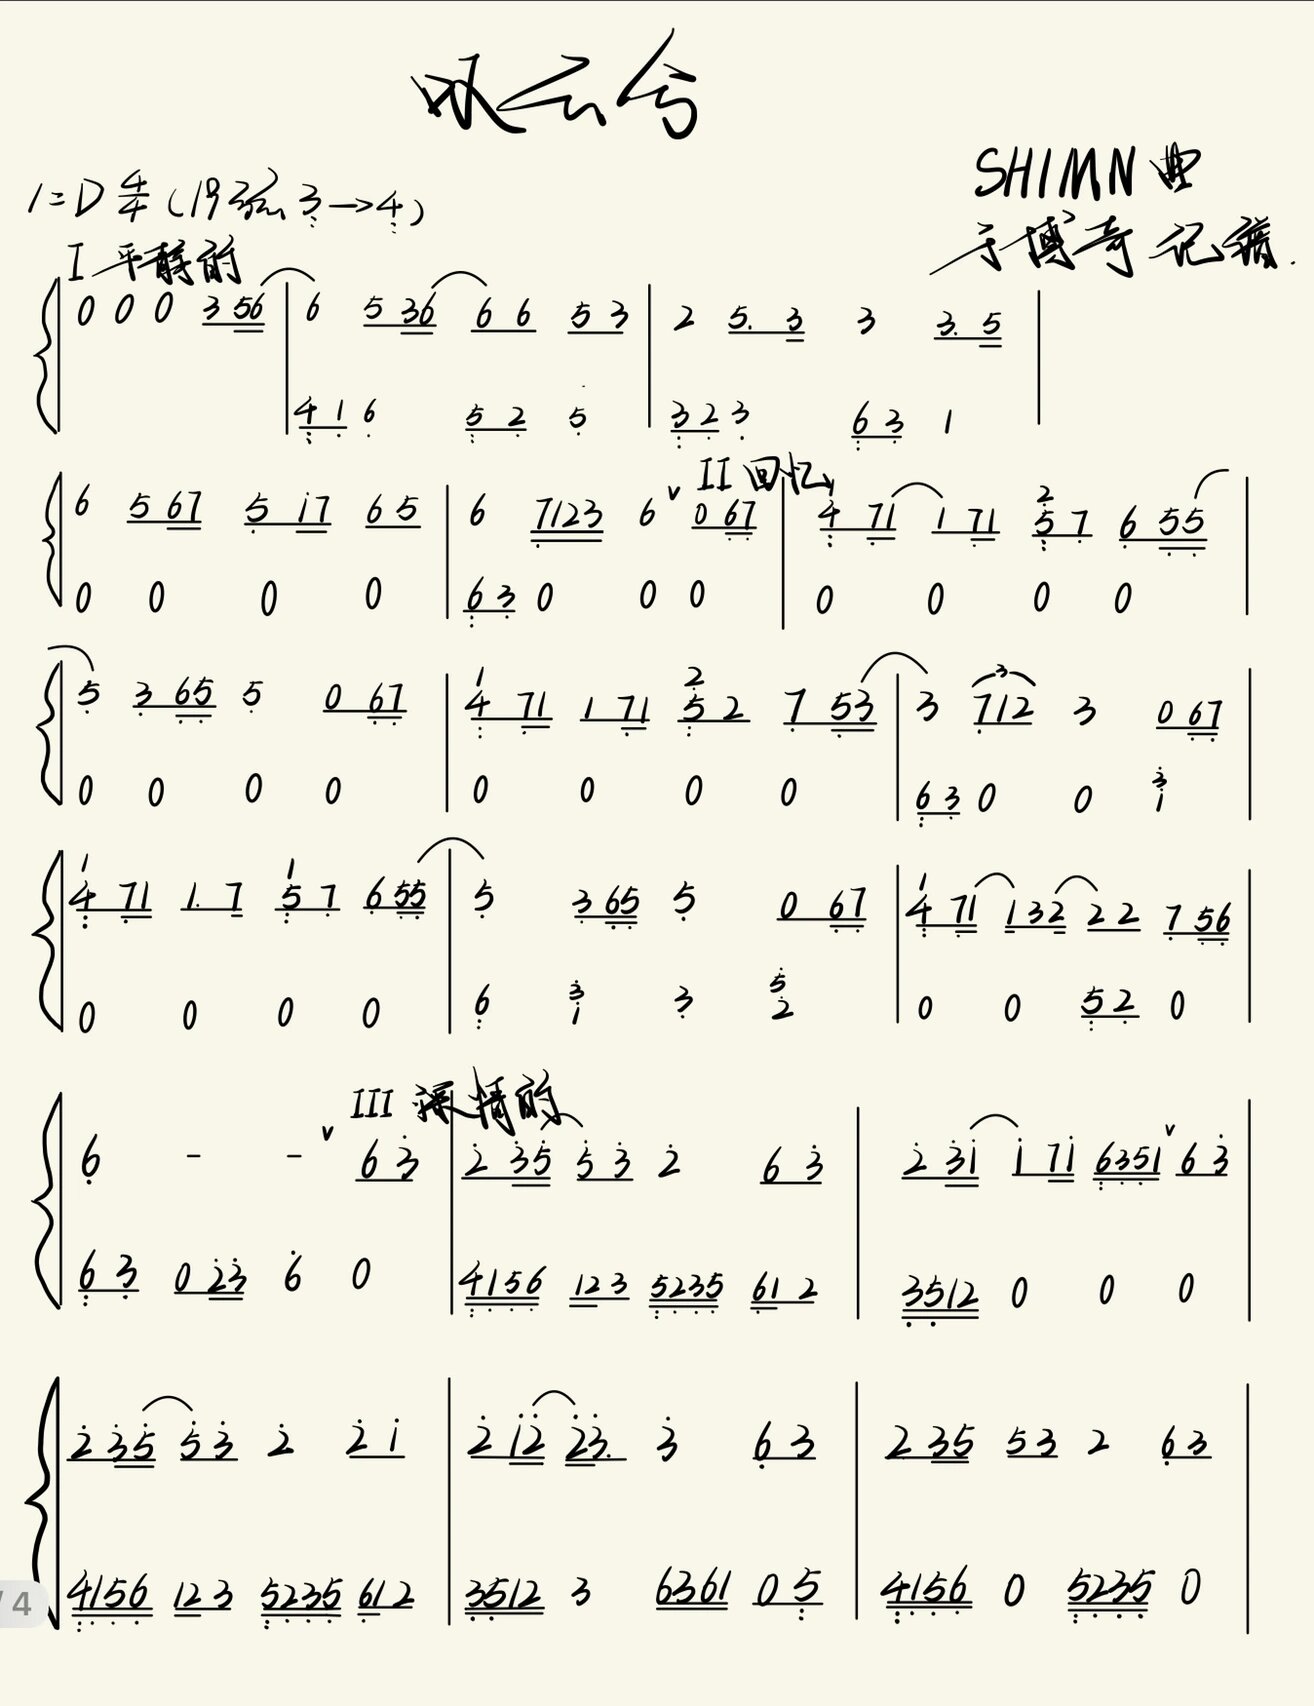 叹云兮
1=D 4/4 (19弦 3→4)
SHIMN 曲
于博奇 记谱.
I 平静的
0 0 0 3 56 | 6 5 36 6 6 5 3 | 2 5. 3 3 3. 5 |
4 1 6 5 2 5 | 3 2 3 6 3 1
II 回忆
6 5 67 5 i7 6 5 | 6 7123 6 v 0 67 | 1 4 71 1 71 2 5 7 6 55 |
0 0 0 0 | 6 3 0 0 0 | 0 0 0 0
5 3 65 5 0 67 | 1 4 71 1 71 2 5 2 7 53 | 3 3 712 3 0 67 |
0 0 0 0 | 0 0 0 0 | 6 3 0 0 3 1
1 4 71 1. 7 1 5 7 6 55 | 5 3 65 5 0 67 | 1 4 71 132 2 2 7 56 |
0 0 0 0 | 6 3 1 3 5 2 | 0 0 5 2 0
III 深情的
6 - - v 6 3 | 2 35 5 3 2 6 3 | 2 3i i 7i 6351 v 6 3 |
6 3 0 23 6 0 | 4156 12 3 5235 61 2 | 3512 0 0 0
2 35 5 3 2 2 i | 2 i2 23. 3 6 3 | 2 35 5 3 2 6 3 |
4156 12 3 5235 61 2 | 3512 3 6361 0 5 | 4156 0 5235 0
/ 4